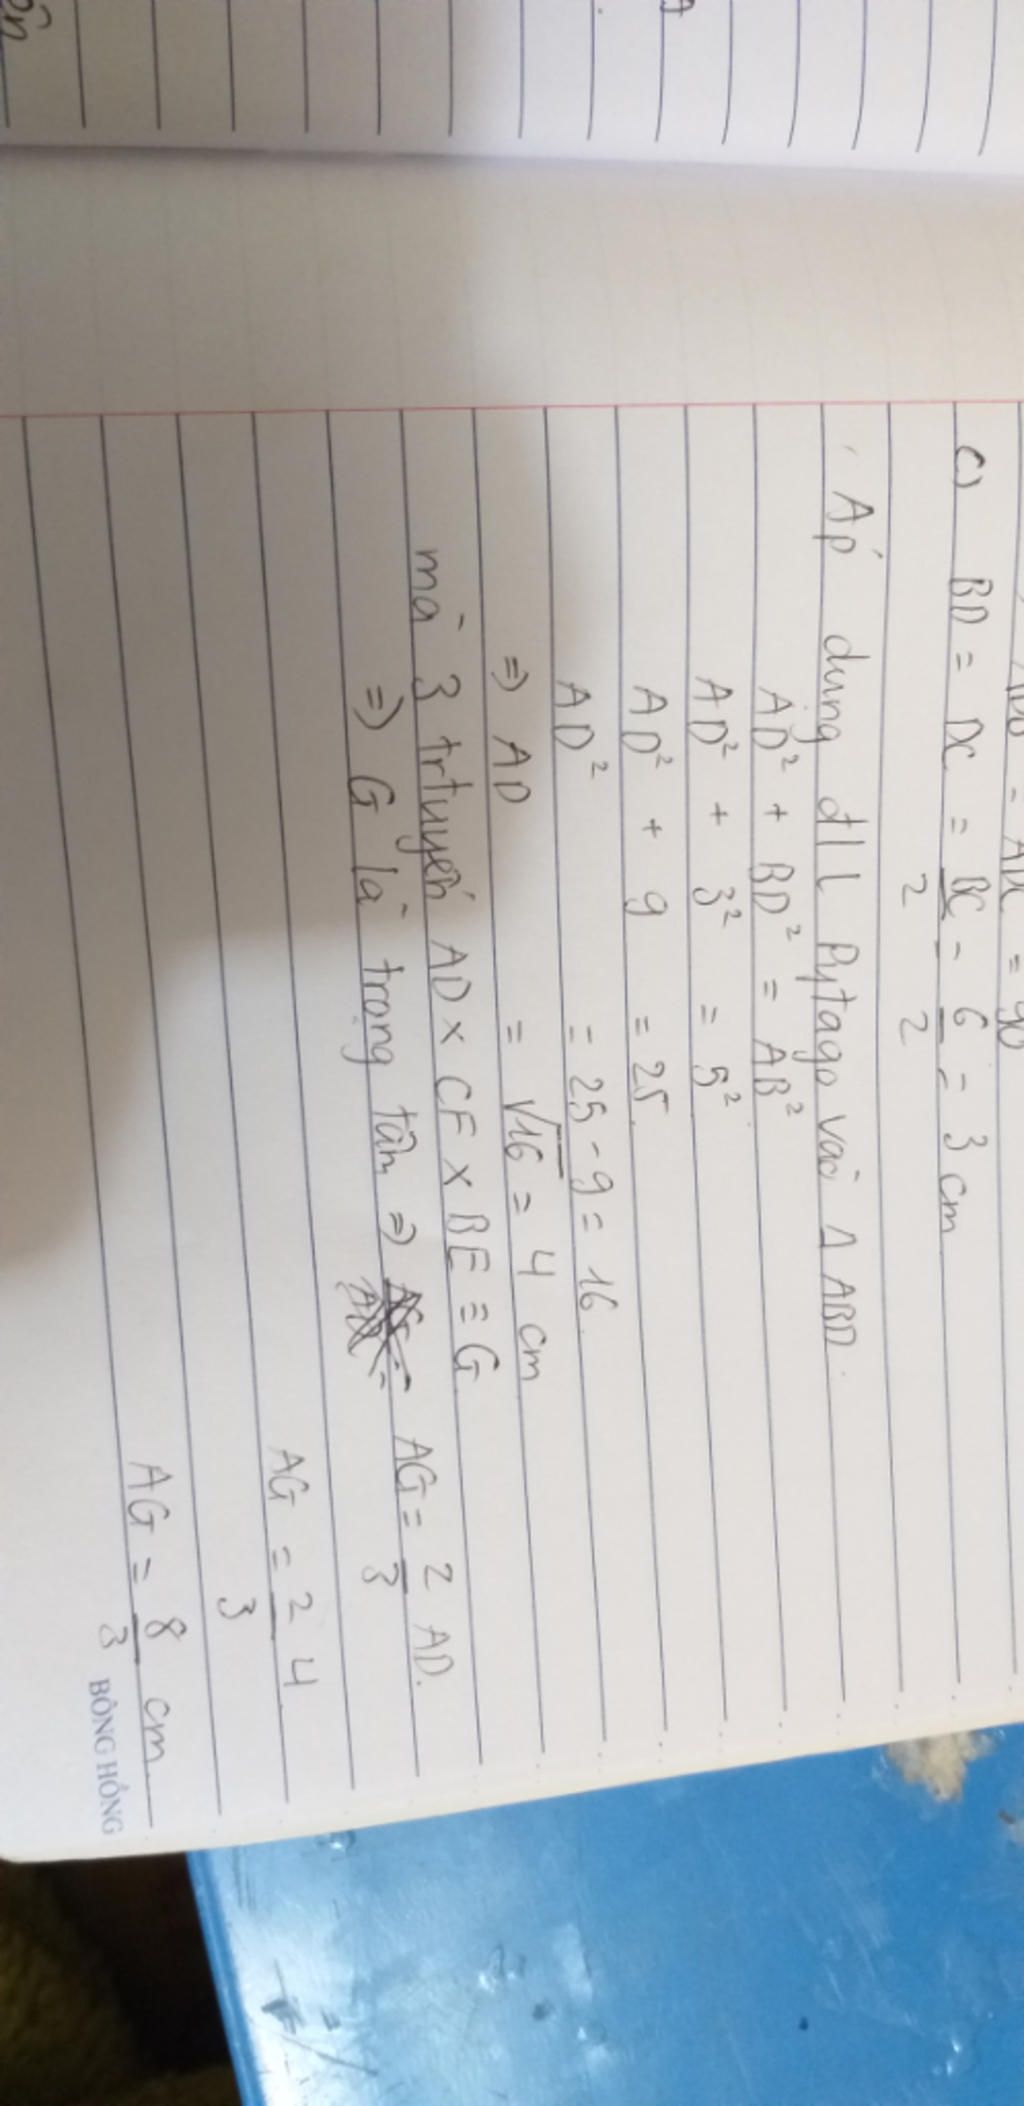 ADB = ADC = 90
c) BD = DC = BC/2 = 6/2 = 3 cm
Áp dụng đlL Pytago vào Δ ABD.
AD² + BD² = AB²
AD² + 3² = 5²
AD² + 9 = 25
AD² = 25 - 9 = 16
=> AD = √16 = 4 cm
mà 3 trtuyến AD x CF x BE = G
=> G là trọng tâm => AG = 2/3 AD.
AG = 2/3 4
AG = 8/3 cm
BÔNG HỒNG